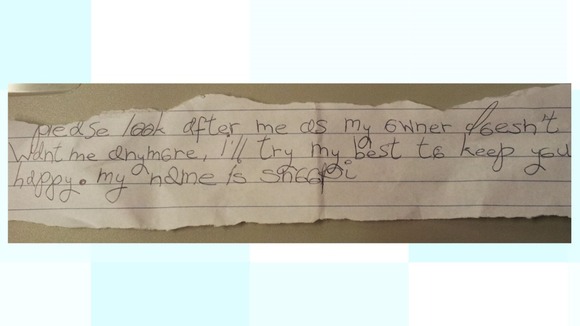 please look after me as my owner doesn't
want me anymore, I'll try my best to keep you
happy. my name is snoopi